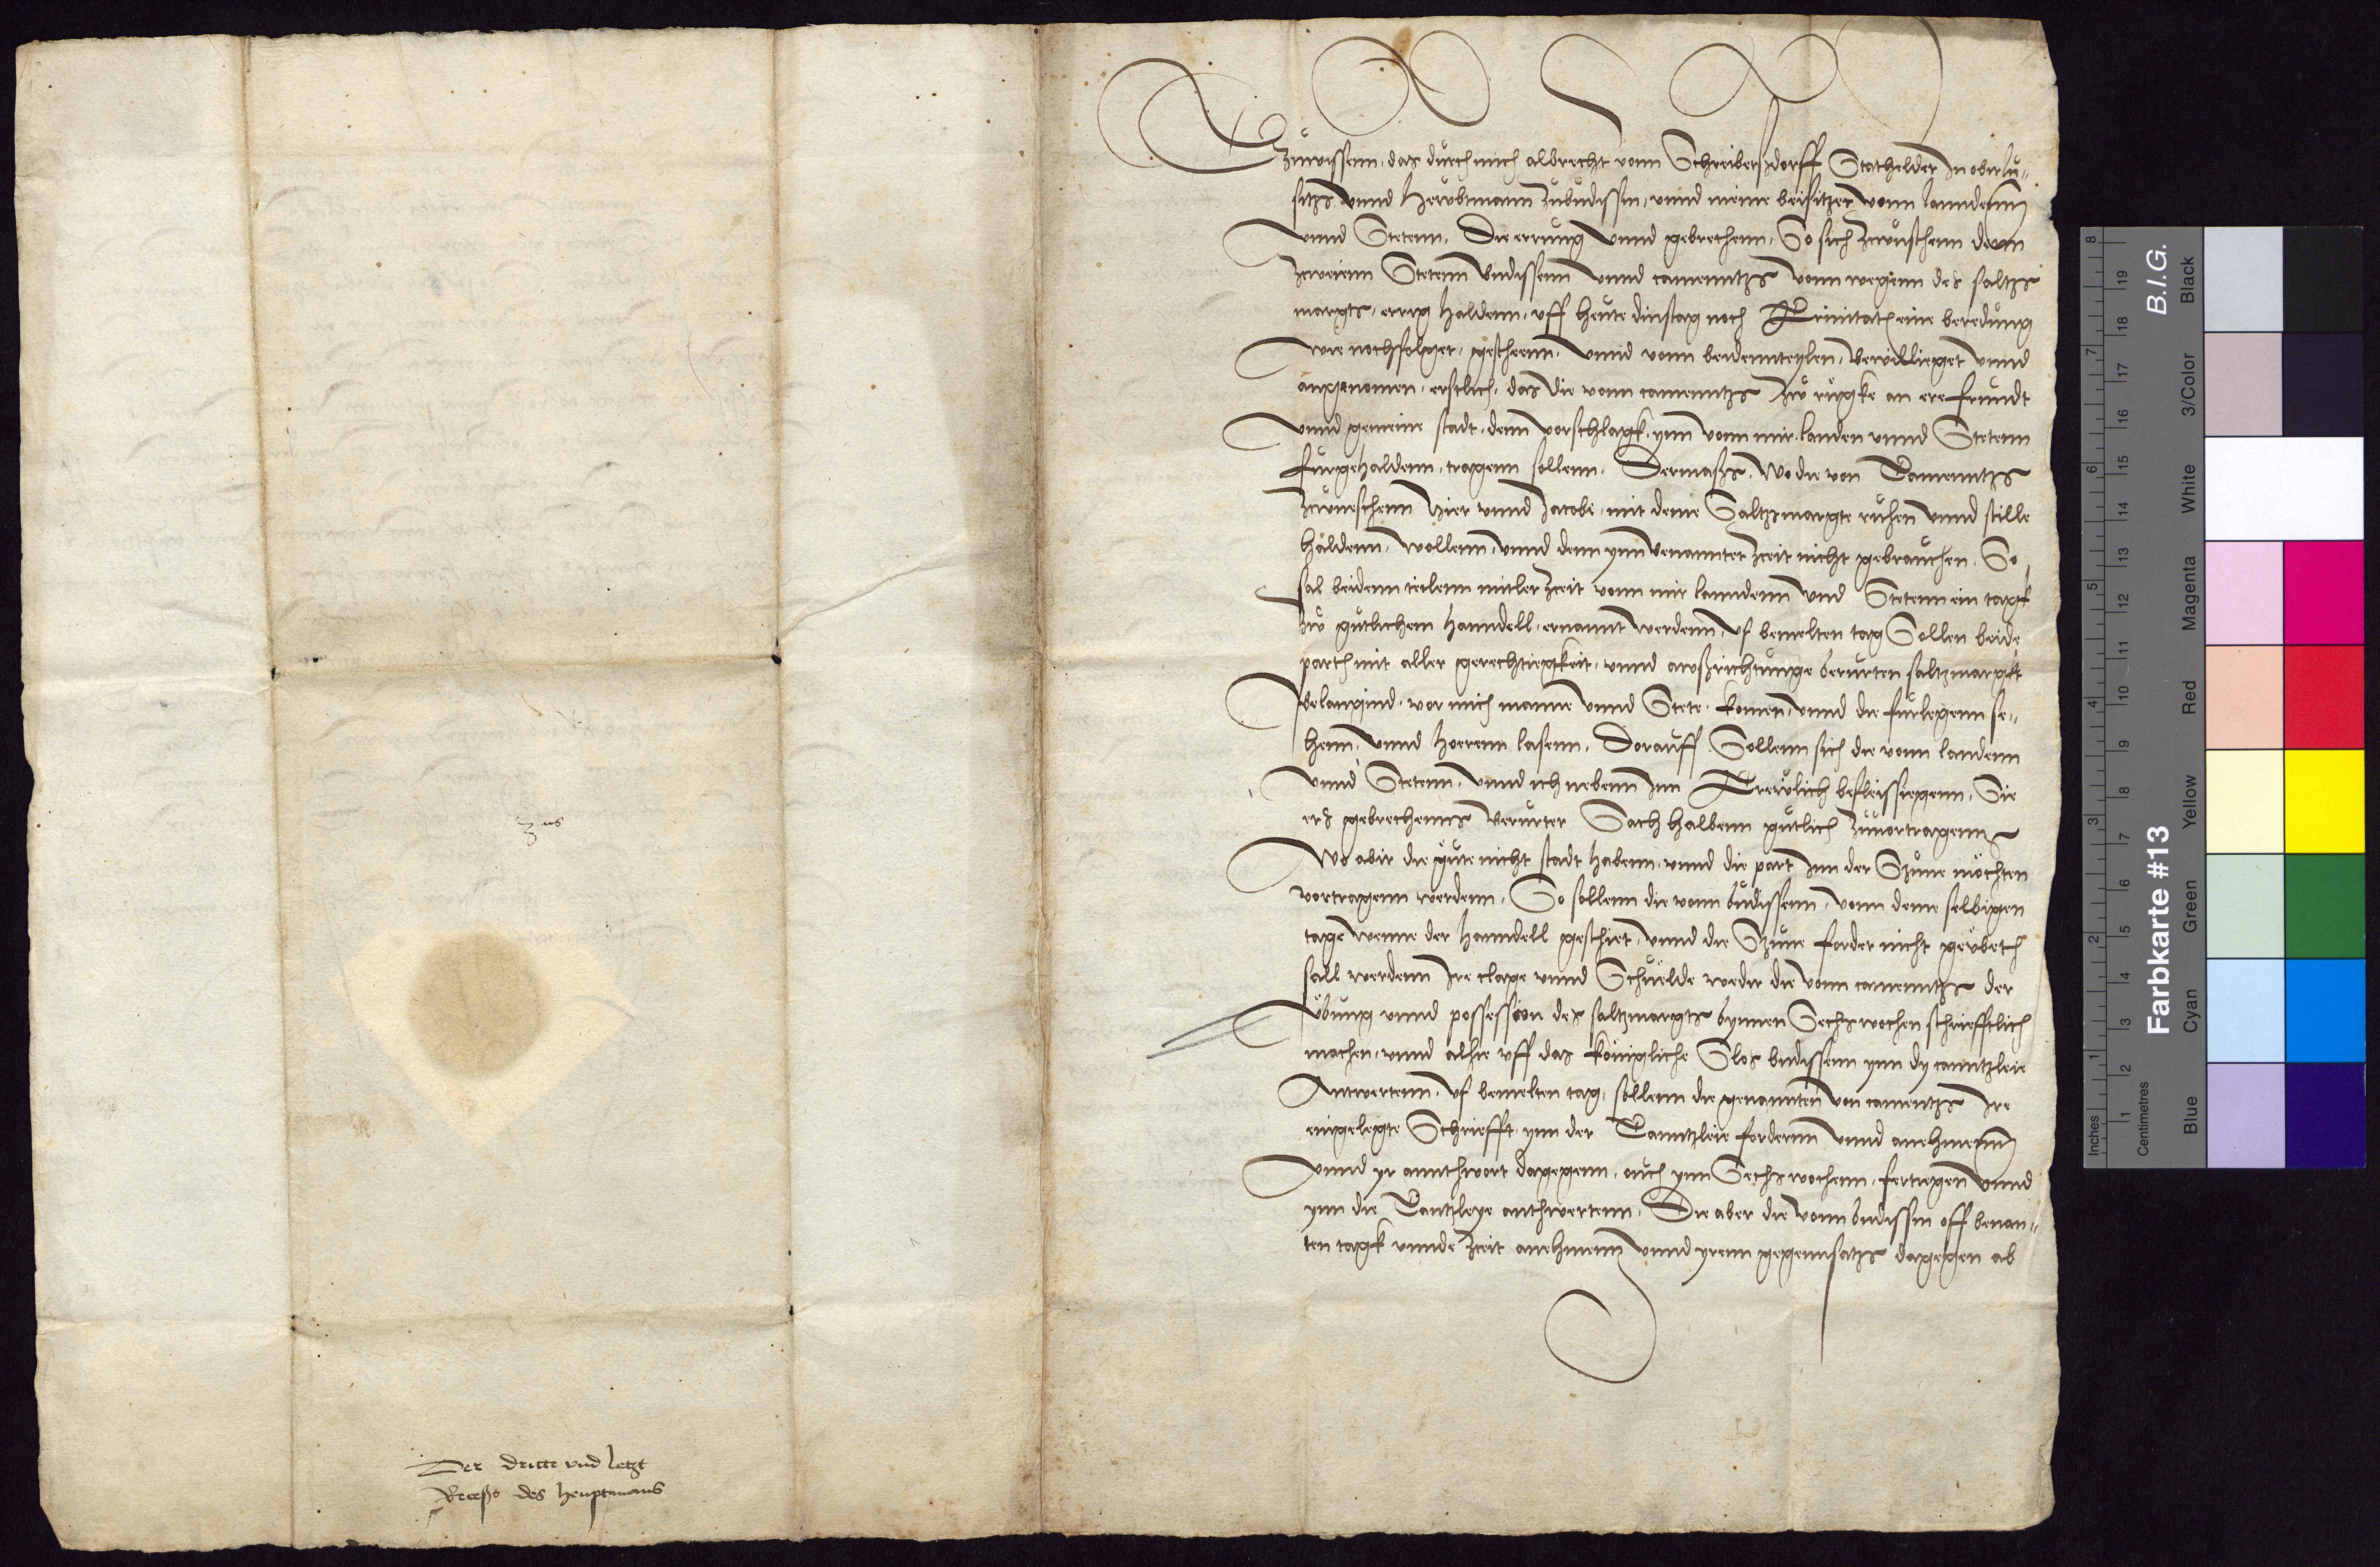 Zuwissenn, das durch mich albrecht vonn Schreiberszdorff Stathelder In obirlu„
sitz vnnd Heuvbtmann zubudissin, vnnd meine beisitzer vonn lanndenn
vnnd Stetenn, Die errung vnnd gebrechenn, So sich zcwuschenn denn
zcweienn Stetenn Budissenn vnnd camenntz vonn wegenn des saltz
margts, errig haldenn, vff heute dinstag noch Trinitatis eine beredung
wie nochfolget, gescheenn, vnnd vonn beidennteylen, bewillieget vnnd
angenomen, erstlich, das die vonn camenntz zu rugke an ere frundt
vnnd gemeine stadt, denn vorschlagk, ynn vonn mir, landen vnnd Stetenn
furgehaldenn, tragenn sollenn, Dermasz, Wo die von Camenntz
zcwueschenn hier vnnd Jacobi, mit deme Saltzmargte ruhen vnnd stille
haldenn, wollenn, vnnd denn ynn benannter zceit nicht gebrauchen, So
sal beidenn teilenn mitler zceit vonn mir lanndenn vnd Stetenn ein tagk
zu gutlichem hanndell, ernannt werdenn, vf bemelten tag Sollen beide
part mit aller gerechtiegkeit, vnnd awszrichtunge berurten saltzmargkt
belangind, vor mich manne vnnd Stete, komen, vnnd die furlegenn se„
henn, vnnd hoerenn lasenn, Dorauff Sollenn sich die vonn landenn
vnnd Stetenn, vnnd ich nebenn Inn Trewlich befleissiegenn, Sie
ers gebrechenns berurter Sach halbenn gutlich zuuortragenn
Wo abir die gute nicht stadt habenn, vnnd die part Inn der Szune mochten
vortragenn werdenn, So sollenn die vonn budissenn, vonn deme selbigen
tage wenne der hanndell geschiet, vnnd die Szune forder nicht geubet
sall werdenn Ire clage vnnd Schuelde wedir die vonn camenntz der
ubung vnnd possession des saltzmargts bynnen Sechs wochen schriefftlich
machen, vnnd alhie vff das konigliche Slos budissenn ynn dy canntzleie
Antwertenn, vf bemelten tag, sollenn die genannten von camentz Ire
eingelegte Schriefft ynn der Canntzleie fordernn vnnd anehmenn
vnnd yr annthwort dagegenn, ouch ynn Sechs wochenn, fertiegen vnnd
ynn die Cantzleye anthwertenn, Die aber die vonn budissin off benan„
ten tagk vnnde zceit anehmenn vnnd yrenn gegennsatz dagegen ab
Der dritte vnd letzt
Recess des heuptmans